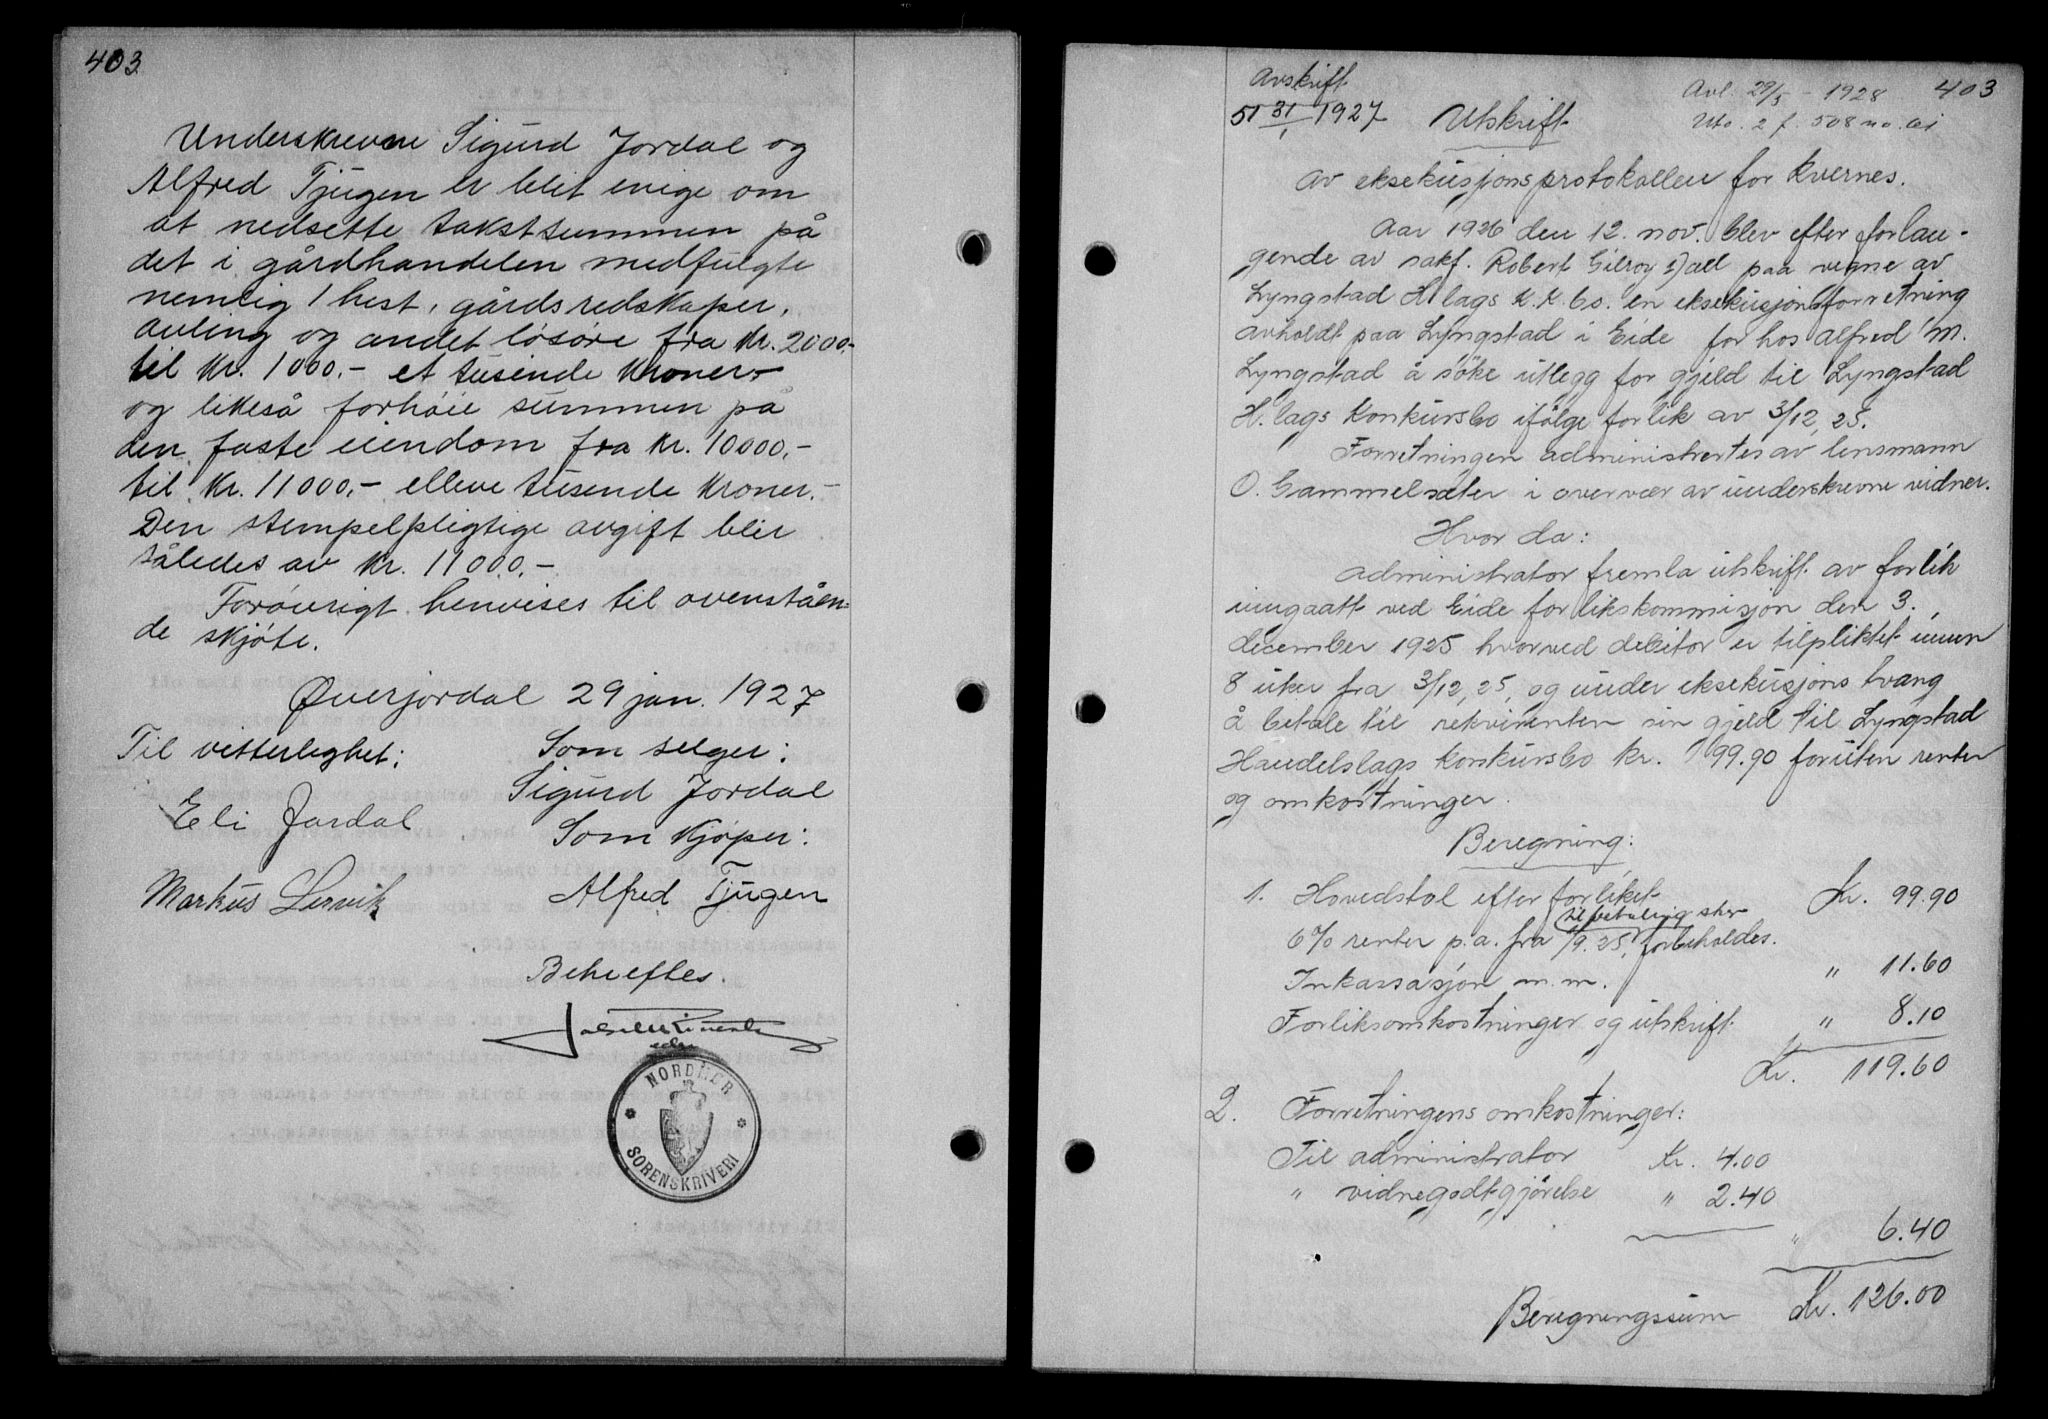 403.
Underskrevne Sigurd Jordal og
Alfred Tjugen er blit enige om
at nedsette takstsummen på
det i gårdhandelen medfulgte
nemlig 1 hest, gårdsredskaper,
avling og andet løsøre fra Kr. 2000.-
til Kr. 1000.- et tusende Kroner.-
og likeså forhøie summen på
den faste eiendom fra Kr. 10000.-
til Kr. 11000.- elleve tusende Kroner.-
Den stempelpligtige avgift blir
således av Kr. 11000.-
Forøvrigt henvises til ovenståen-
de skjøte.
Øverjordal 29 jan. 1927
Til vitterlighet: Som selger:
Sigurd Jordal
Eli Jordal Som Kjøper:
Markus Lervik Alfred Tjugen
Bekreftes.
NORDMØR
SORENSKRIVERI
Avskrift
51 31/1 1927 Utskrift
Avl. 29/5 - 1928 403
2 f. 508 no.
av eksekusjonsprotokollen for Kvernes.
Aar 1926 den 12. nov. blev efter forlan-
gende av sakf. Robert Gilroy Dall paa vegne av
Lyngstad H.lags K.K.bo. en eksekusjonsforretning
avholdt paa Lyngstad i Eide for hos Alfred M.
Lyngstad å söke utlegg for gjeld til Lyngstad
H.lags Konkursbo ifölge forlik av 3/12, 25.
Forretningen administrertes av lensmann
O. Gammelsæter i overvær av underskrevne vidner.
Hvor da:
Administrator fremla utskrift av forlik
inngaatt ved Eide forlikskommisjon den 3.
december 1925 hvorved debitor er tilpliktet innen
8 uker fra 3/12, 25, og under eksekusjons tvang
å betale til rekvirenten sin gjeld til Lyngstad
Handelslags Konkursbo kr. 99.90 foruten renter
og omkostninger.
Beregning:
1. Hovedstol efter forliket Kr. 99.90
6% renter p.a. fra 1/9. 25, til betaling skjer forbeholdes.
Inkassasjon m.m. " 11.60
Forliksomkostninger og utskrift " 8.10
Kr. 119.60
2. Forretningens omkostninger:
Til administrator Kr. 4.00
" vidnegodtgjörelse " 2.40
" 6.40
Beregningssum Kr. 126.00